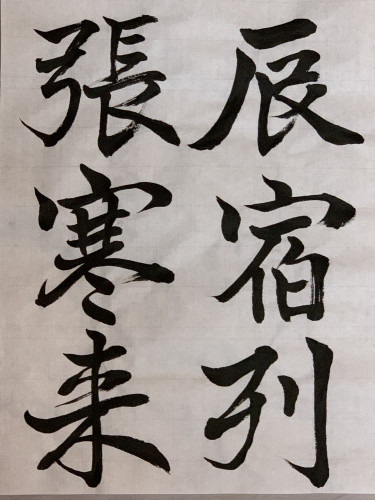 辰宿列
張寒来